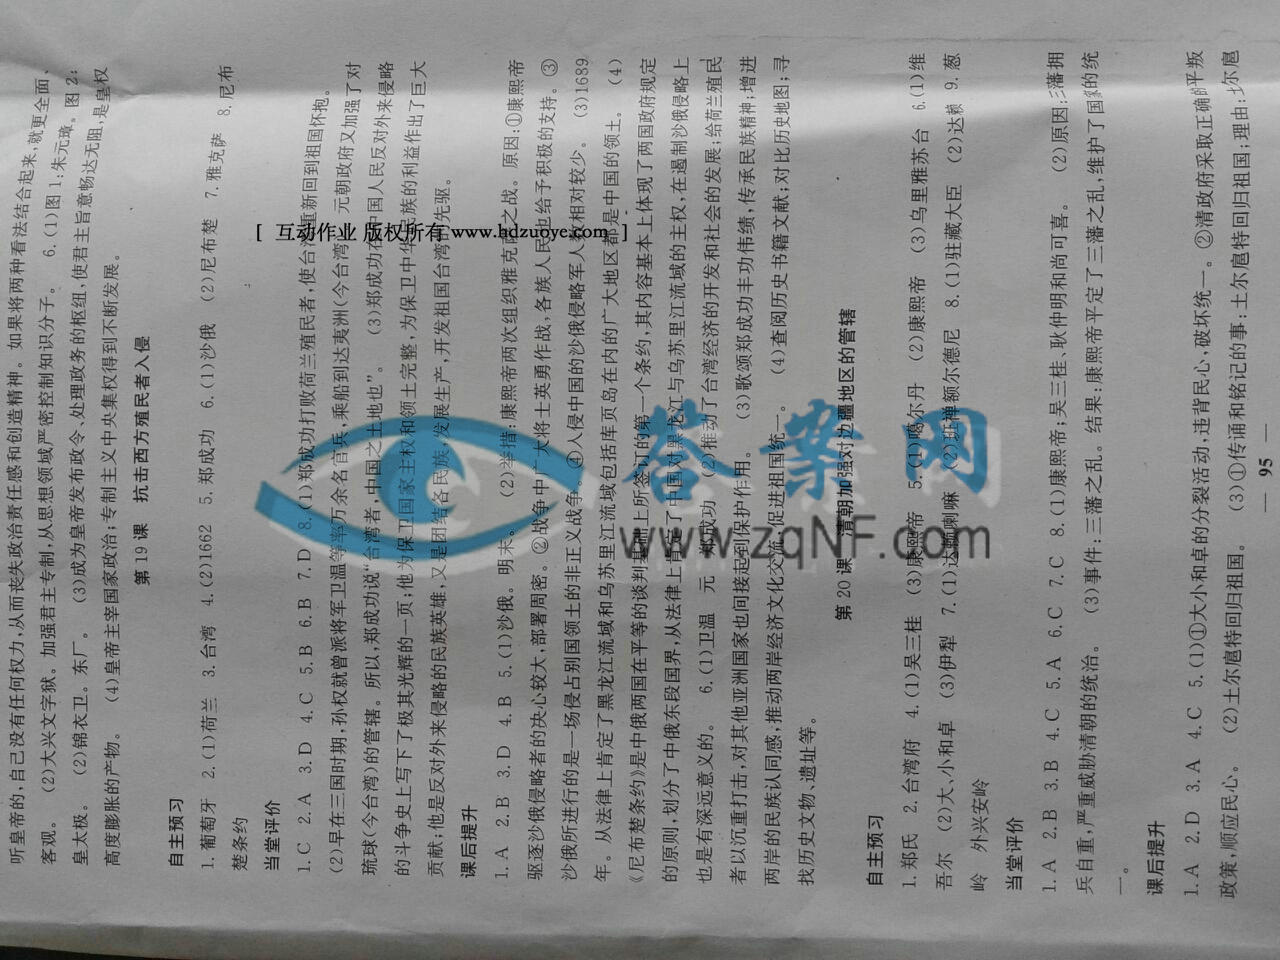 听皇帝的,自己没有任何权力,从而丧失政治责任感和创造精神。如果将两种看法结合起来,就更全面、
客观。 (2)大兴文字狱。加强君主专制,从思想领域严密控制知识分子。 6.(1)图1:朱元璋。图2:
皇太极。 (2)锦衣卫。东厂。 (3)成为皇帝发布政令、处理政务的枢纽,使君主旨意畅达无阻,是皇权
高度膨胀的产物。 (4)皇帝主宰国家政治;专制主义中央集权得到不断发展。
第19课 抗击西方殖民者入侵
自主预习
1.葡萄牙 2.(1)荷兰 3.台湾 4.(2)1662 5.郑成功 6.(1)沙俄 (2)尼布楚 7.雅克萨 8.尼布
楚条约
当堂评价
1.C 2.A 3.D 4.C 5.B 6.B 7.D 8.(1)郑成功打败荷兰殖民者,使台湾重新回到祖国怀抱。
(2)早在三国时期,孙权就曾派将军卫温等率万余名官兵,乘船到达夷洲(今台湾) 元朝政府又加强了对
琉球(今台湾)的管辖。所以,郑成功说“台湾者,中国之土地也”。 (3)郑成功在中国人民反对外来侵略
的斗争史上写下了极其光辉的一页;他为保卫国家主权和领土完整,为保卫中华民族的利益作出了巨大
贡献;他是反对外来侵略的民族英雄,又是团结各民族,发展生产,开发祖国台湾的先驱。
课后提升
1.A 2.B 3.D 4.B 5.(1)沙俄。明末。 (2)举措:康熙帝两次组织雅克萨之战。原因:①康熙帝
驱逐沙俄侵略者的决心较大,部署周密。②战争中广大将士英勇作战,各族人民也给予积极的支持。③
沙俄所进行的是一场侵占别国领土的非正义战争。④入侵中国的沙俄侵略军人数相对较少。 (3)1689
年。从法律上肯定了黑龙江流域和乌苏里江流域包括库页岛在内的广大地区都是中国的领土。 (4)
《尼布楚条约》是中俄两国在平等的谈判基础上所签订的第一个条约,其内容基本上体现了两国政府规定
的原则,划分了中俄东段国界,从法律上肯定了中国对黑龙江与乌苏里江流域的主权,在遏制沙俄侵略上
也是有深远意义的。 6.(1)卫温 元 郑成功 (2)推动了台湾经济的开发和社会的发展;给荷兰殖民
者以沉重打击,对其他亚洲国家也间接起到保护作用。 (3)歌颂郑成功丰功伟绩,传承民族精神;增进
两岸的民族认同感,推动两岸经济文化交流,促进祖国统一。 (4)查阅历史书籍文献;对比历史地图;寻
找历史文物、遗址等。
第20课 清朝加强对边疆地区的管辖
自主预习
1.郑氏 2.台湾府 4.(1)吴三桂 (3)康熙帝 5.(1)噶尔丹 (2)康熙帝 (3)乌里雅苏台 6.(1)维
吾尔 (2)大、小和卓 (3)伊犁 7.(1)达赖喇嘛 (2)班禅额尔德尼 8.(1)驻藏大臣 (2)达赖 9.葱
岭 外兴安岭
当堂评价
1.A 2.B 3.B 4.C 5.A 6.C 7.C 8.(1)康熙帝;吴三桂、耿仲明和尚可喜。 (2)原因:三藩拥
兵自重,严重威胁清朝的统治。 (3)事件:三藩之乱。结果:康熙帝平定了三藩之乱,维护了国家的统
一。
课后提升
1.A 2.D 3.A 4.C 5.(1)①大小和卓的分裂活动,违背民心,破坏统一。②清政府采取正确的平叛
政策,顺应民心。 (2)土尔扈特回归祖国。 (3)①传诵和铭记的事:土尔扈特回归祖国;理由:土尔扈
— 95 —
[ 互动作业 版权所有 www.hdzuoye.com ]
答案网
www.zqNF.com